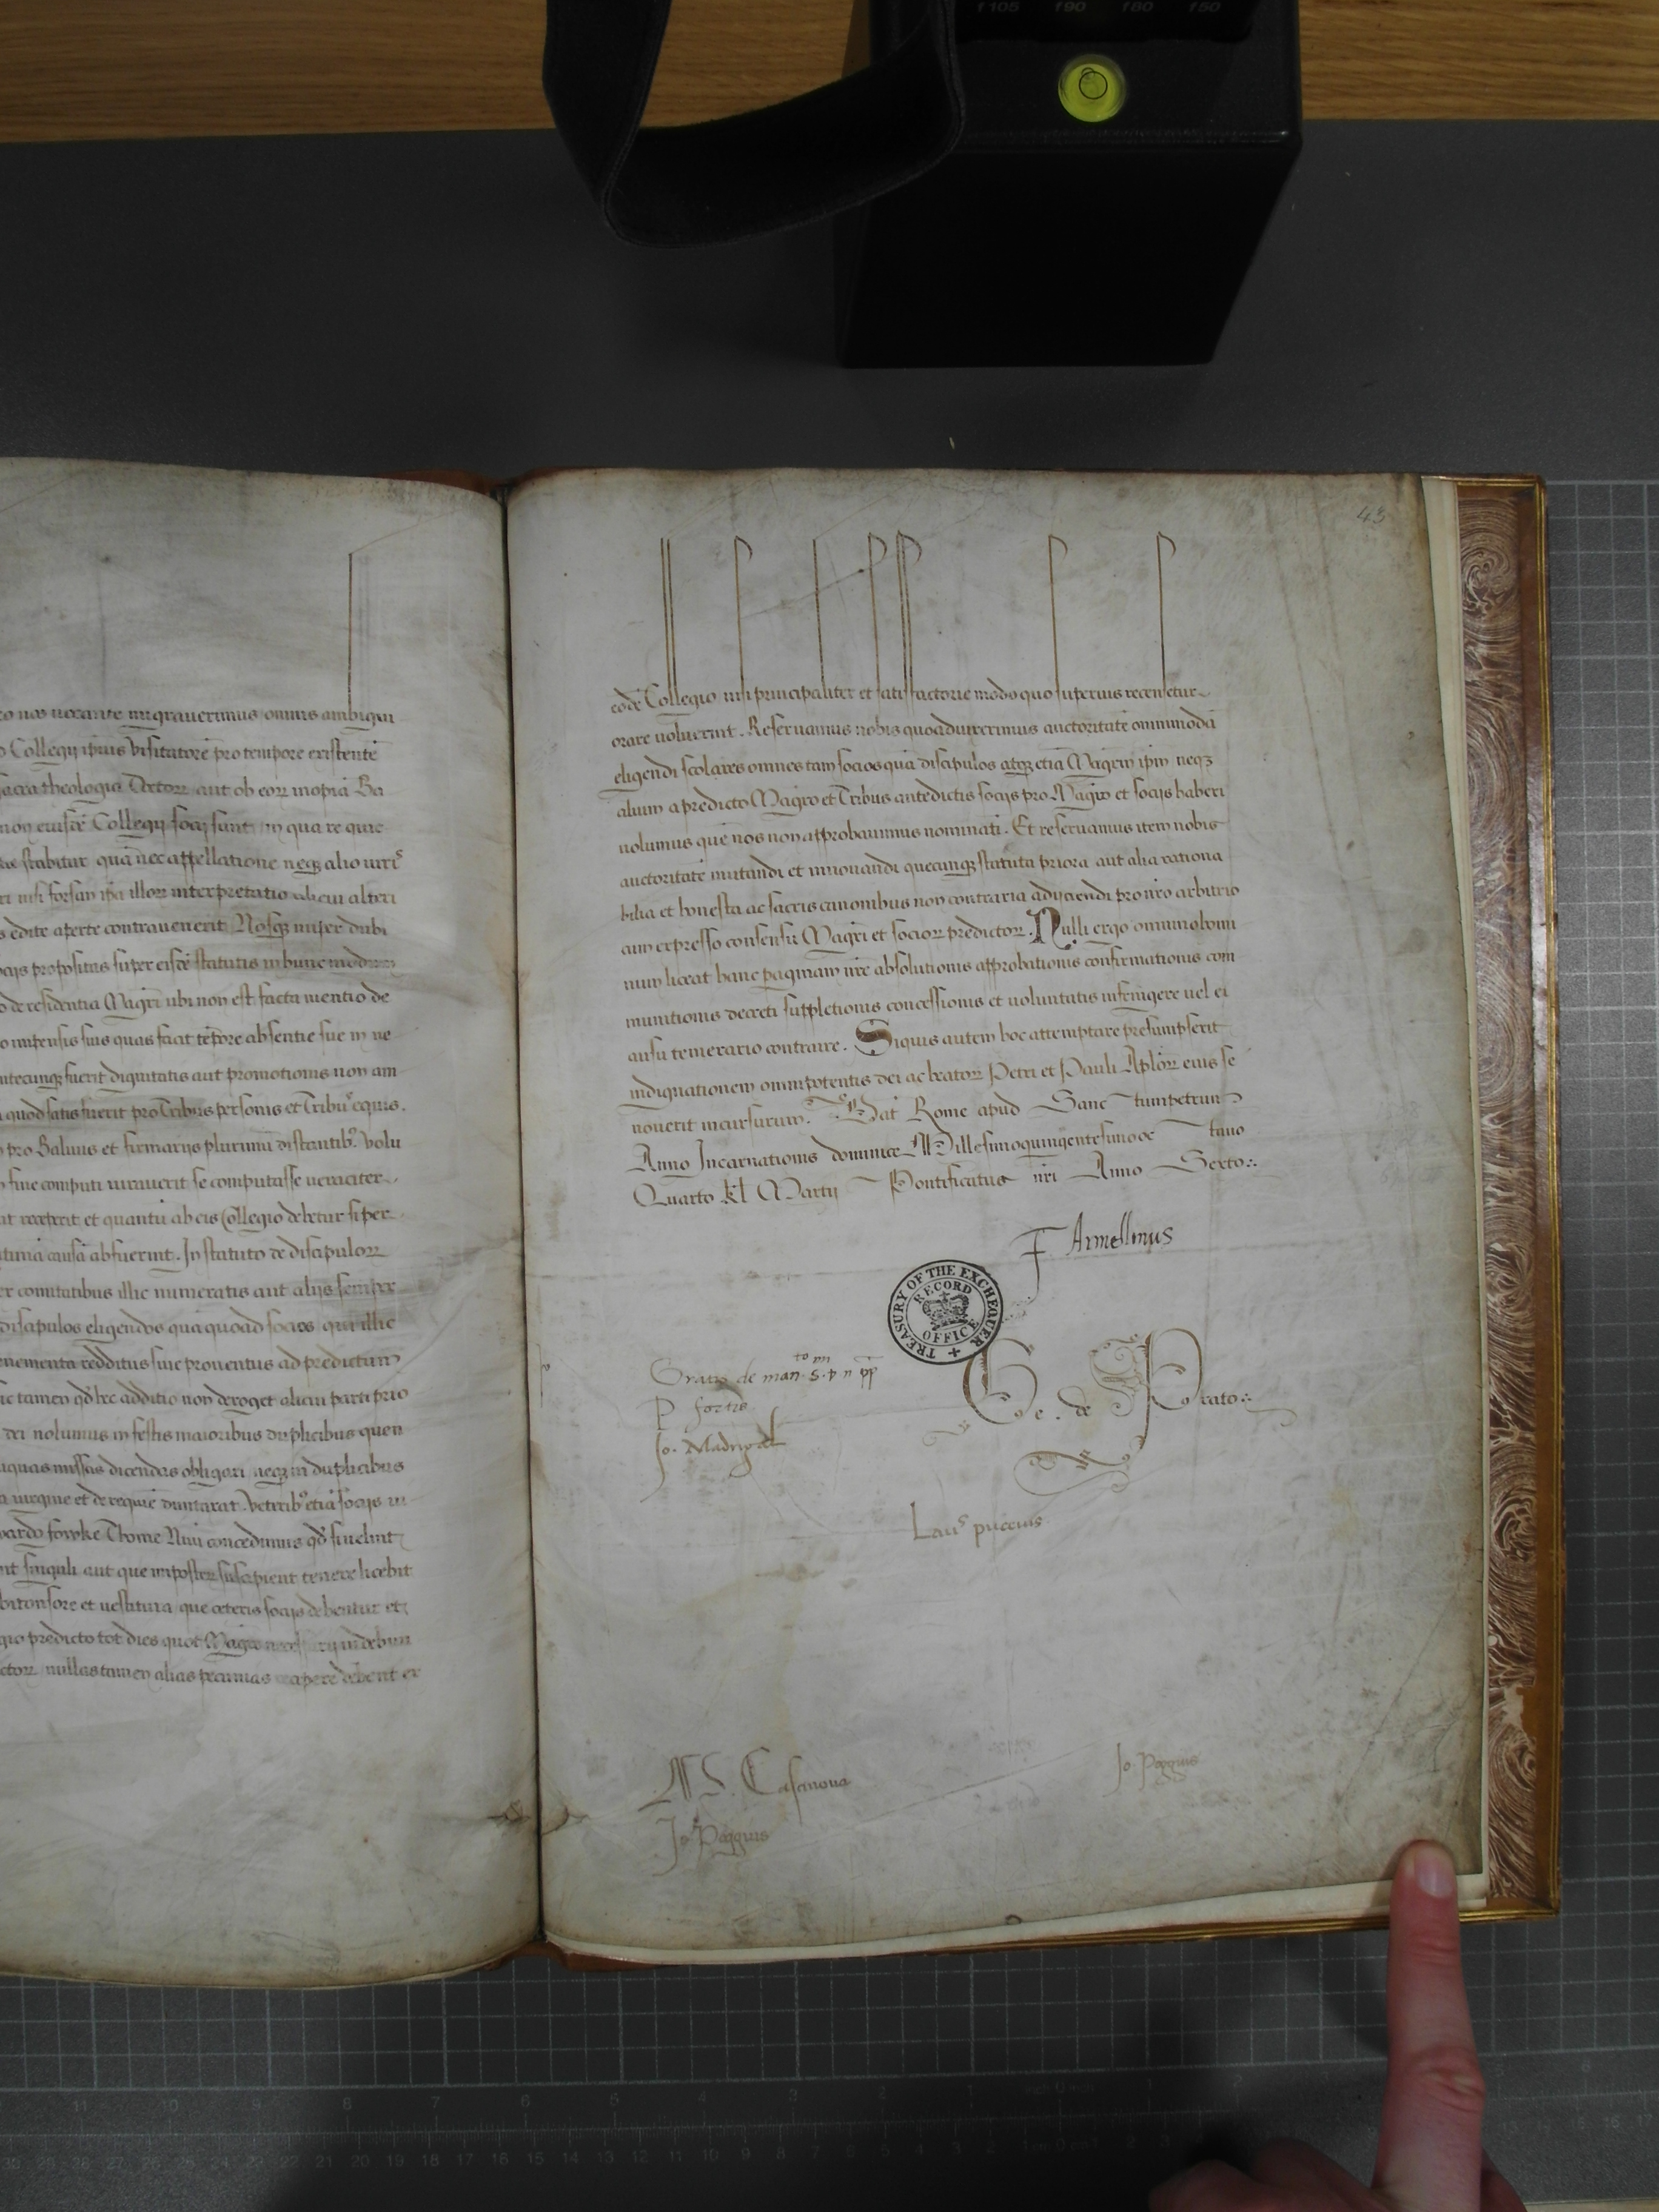 f105 f90 f80 f50
co nos uocante migrauerimus omnis ambigui
o Collegij ipius visitatorē pro tempore existentē
non eiusdē Collegij socij sunt in qua re quic
stabitur quā nec appellatione neqз alio
nisi forsan illoꝝ interpretatio alicui alteri
edite aperte contrauenerit Nosqз nuper dubi
ocijs propositus super eisdē statutis in hunc modum
o de residentia Magrī ubi non est facta mentio de
o impensis suis quas faciat tēpore absentie sue in ne
fuerit dignitatis aut promotionis non am
quod satis fuerit pro Tribus personis et Tribꝰ equis.
pro Baliuis et firmarijs plurimū distantibꝰ. volu
fine computi iurauerit se computasse ueraciter
at receperit et quantū ab eis Collegio debetur super
tima causa abfuerint. In statuto de discipuloꝝ
er comitatibus illic numeratis aut alijs semper
discipulos eligendos quā quoad socios qui illic
enementa redditus siue prouentus ad predictum
ic tamen qđ hec additio non deroget alicui parti prio
dei nolumus in festis maioribus duplicibus quem
iquas missas dicendas obligari neqз in duplicibus
uirgine et de requie dumtaxat. Veteribꝰ etiā socijs
uardo fowke Thome Nuu concedimus qđ si uelint
singuli aut que imposteꝝ suscipient tenere licebit
tonsore et uestitura que ceteris socijs debentur et
gio predicto tot dies quot Magro
nullas tamen alias pecunias capere debent ex
43
eodē Collegio nisi principaliter et satisfactorie modo quo superius recensetur
orare uoluerint. Reseruamus nobis quoad uixerimus auctoritatē omnimodā
eligendi scolares omnes tam socios quā discipulos atqз etiā Magrm̄ ipm̄ neqз
alium a predicto Magro et Tribus antedictis socijs pro Magro et socijs haberi
uolumus quē nos non approbauimus nominati. Et reseruamus item nobis
auctoritatē mutandi et innouandi quecunqз statuta priora aut alia rationa
bilia et honesta ac sacris canonibus non contraria adijciendi pro nr̄o arbitrio
cum expresso consensu Magrī et socioꝝ predictoꝝ. Nulli ergo omnino homi
num liceat hanc paginam nr̄e absolutionis approbationis confirmationis com
munitionis decreti suppletionis concessionis et uoluntatis infringere uel ei
ausu temerario contraire. Siquis autem hoc attemptare presumpserit
indignationem omnipotentis dei ac beatoꝝ Petri et Pauli Aploꝝ eius se
nouerit incursurum. Dat Rome apud Sanc tumpetrum
Anno Incarnationis dominice Millesimoquingentesimooc tauo
Quarto kl Martij Pontificatus nr̄i Anno Sexto:.
F Armellinus
TREASURY OF THE EXCHEQUER
RECORD
OFFICE
Gratis de man.to S. d n pp
P fortis
Jo. Madrigal
Ge. de Prato:.
Lauˢ puccius
M. S. Casanoua
Jo. Poggius
Jo. Poggius
11 10 9 8 7 6 5 4 3 2 1 inch 0 inch 1 2
30 29 28 27 26 25 24 23 22 21 20 19 18 17 16 15 14 13 12 11 10 9 8 7 6 5 4 3 2 1cm 0 cm1 2 3